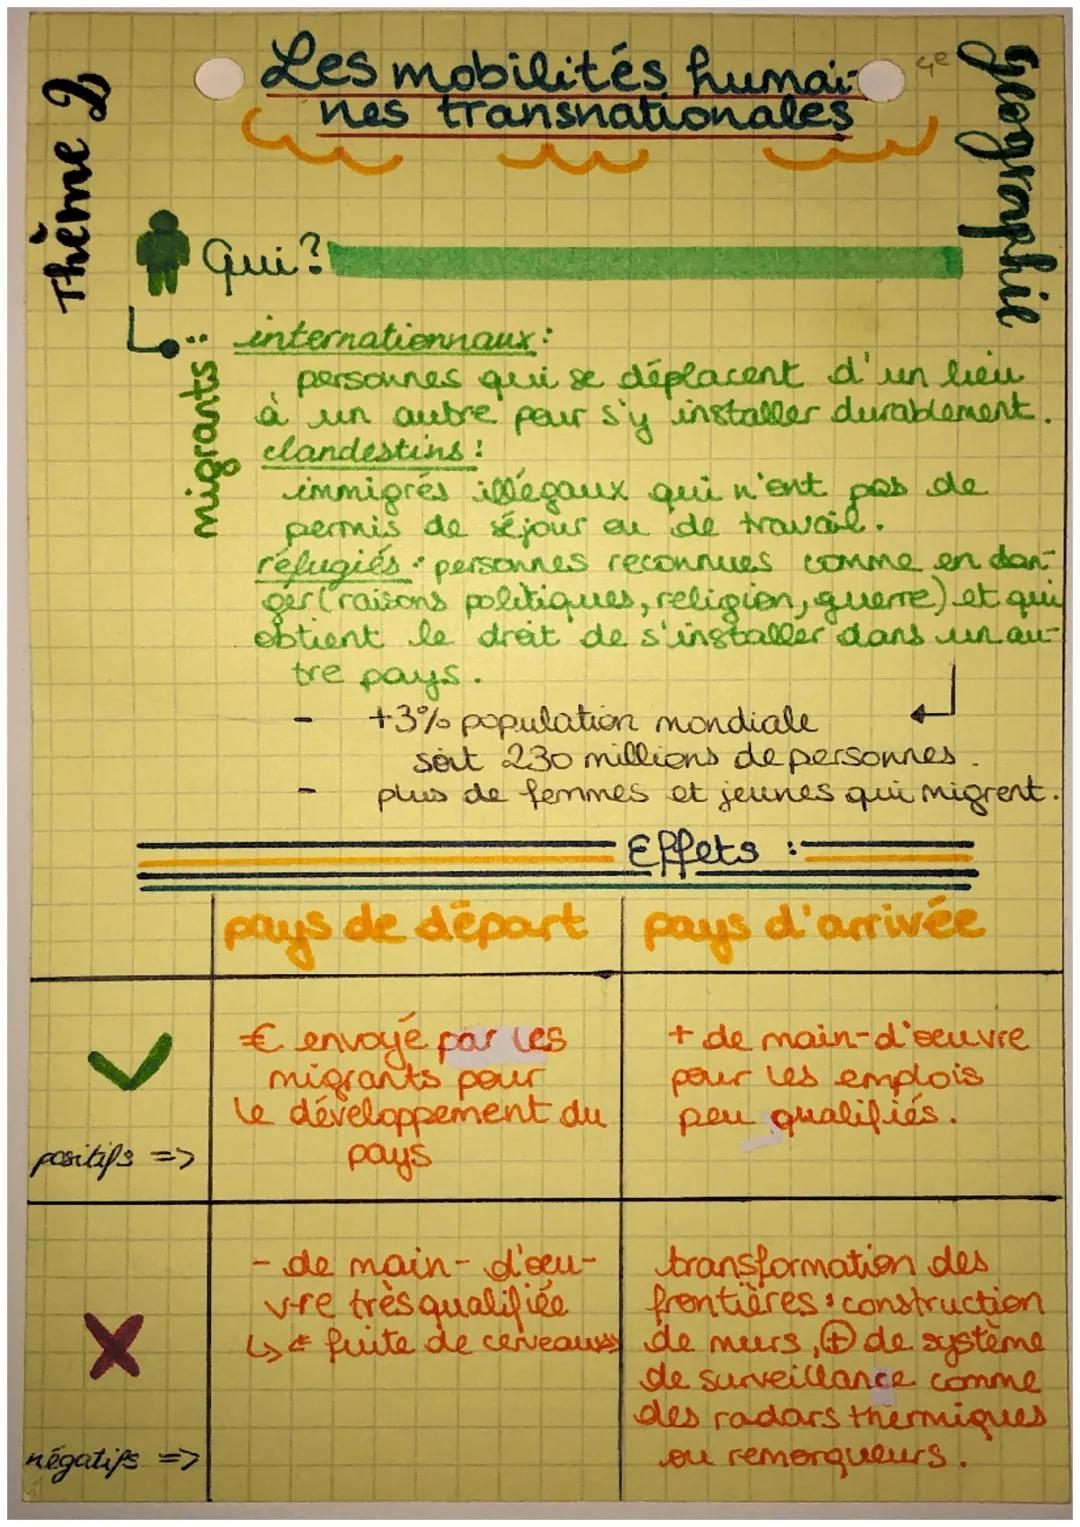 Thème 2
Les mobilités humai-
nes transnationales
4e
Géographie
Qui?
migrants:
internationnaux:
personnes qui se déplacent d'un lieu
à un autre pour s'y installer durablement.
clandestins:
immigrés illégaux qui n'ont pas de
permis de séjour ou de travail.
réfugiés: personnes reconnues comme en dan-
ger (raisons politiques, religion, guerre) et qui
obtient le droit de s'installer dans un au-
tre pays.
- +3% population mondiale
soit 230 millions de personnes.
- plus de femmes et jeunes qui migrent.
Effets :
pays de départ
pays d'arrivée
positifs =>
€ envoyé par les
migrants pour
le développement du
pays
+ de main-d'œuvre
pour les emplois
peu qualifiés.
négatifs =>
- de main-d'œu-
vre très qualifiée
↳ « fuite de cerveaux»
transformation des
frontières: construction
de murs, ⊕ de système
de surveillance comme
des radars thermiques
ou remorqueurs.